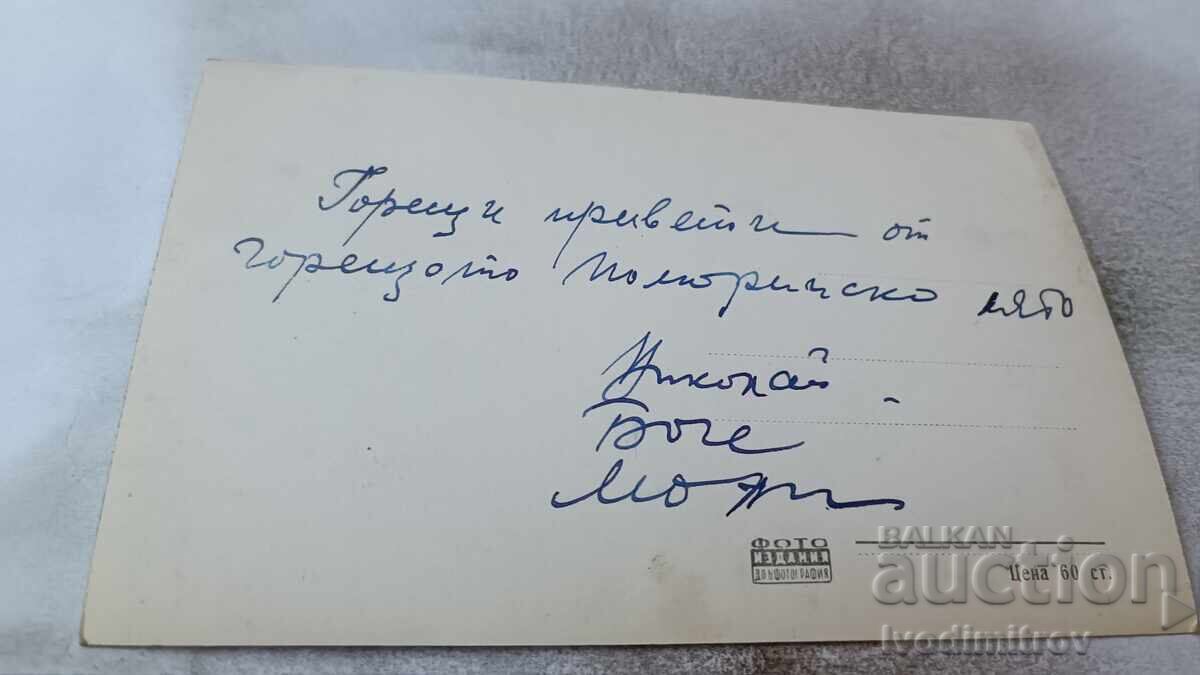 Горещи привети от
горещото Поморийско лято
Николай
Боче
ФОТО
ИЗДАНИЯ
ДП БЪЛГ. ФОТОГРАФИЯ
Цена 60 ст.
BALKAN
auction
Ivodimitrov